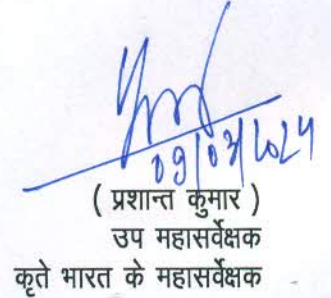 09/03/2024
( प्रशान्त कुमार )
उप महासर्वेक्षक
कृते भारत के महासर्वेक्षक